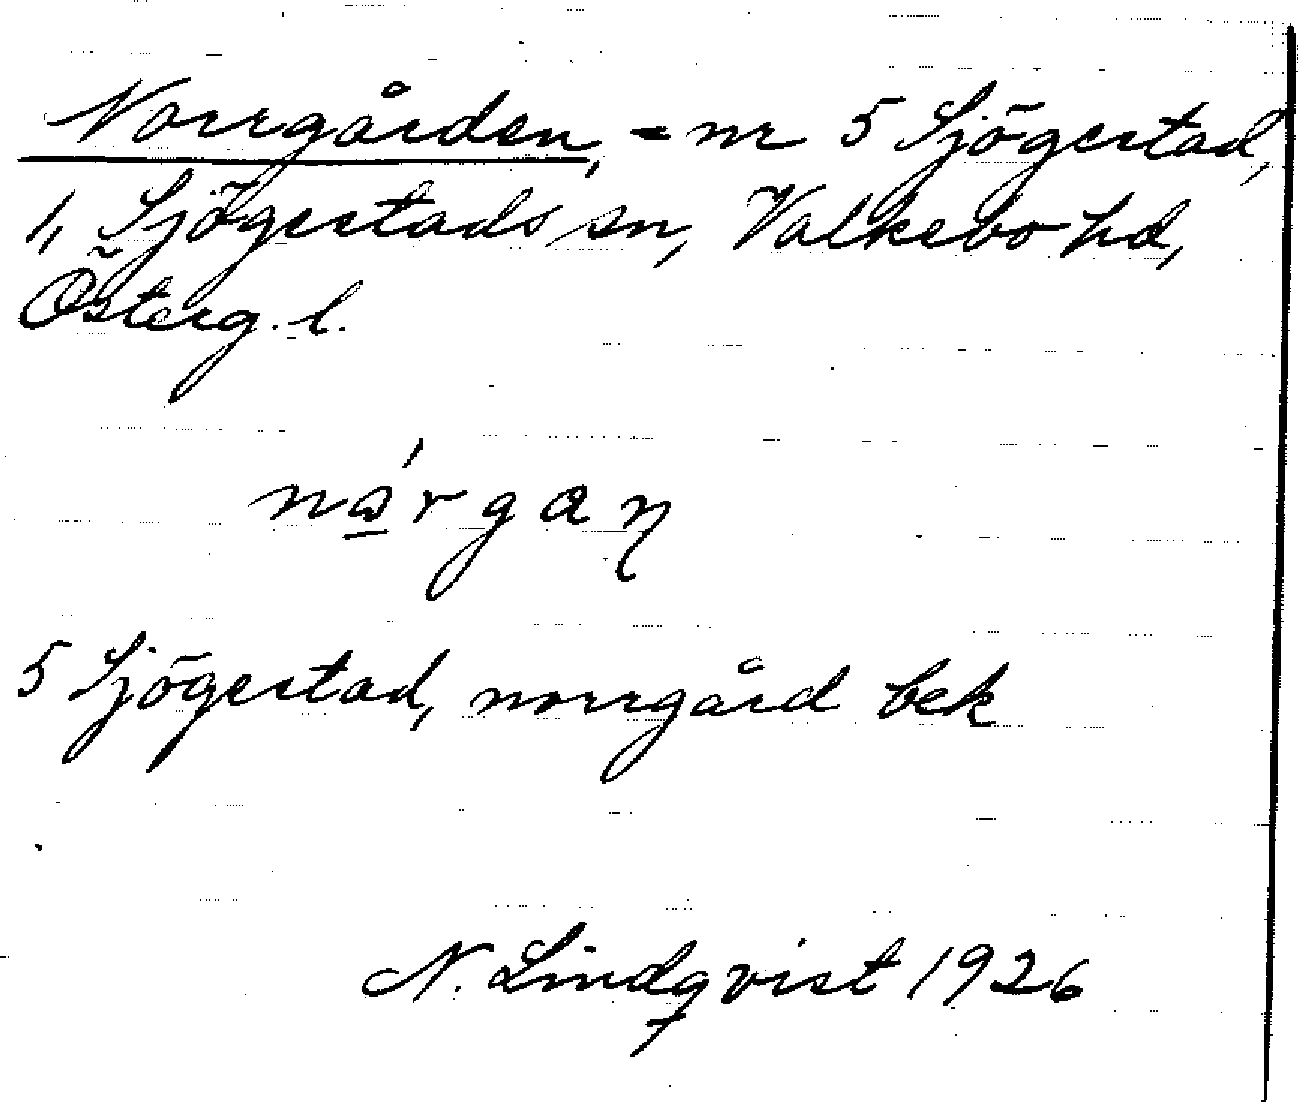 Norrgården, = nr 5 Sjögestad,
1, Sjögestads sn, Valkebo hd,
Österg. l.
nά̲rgaη
5 Sjögestad, norrgård bek
N. Lindqvist 1926